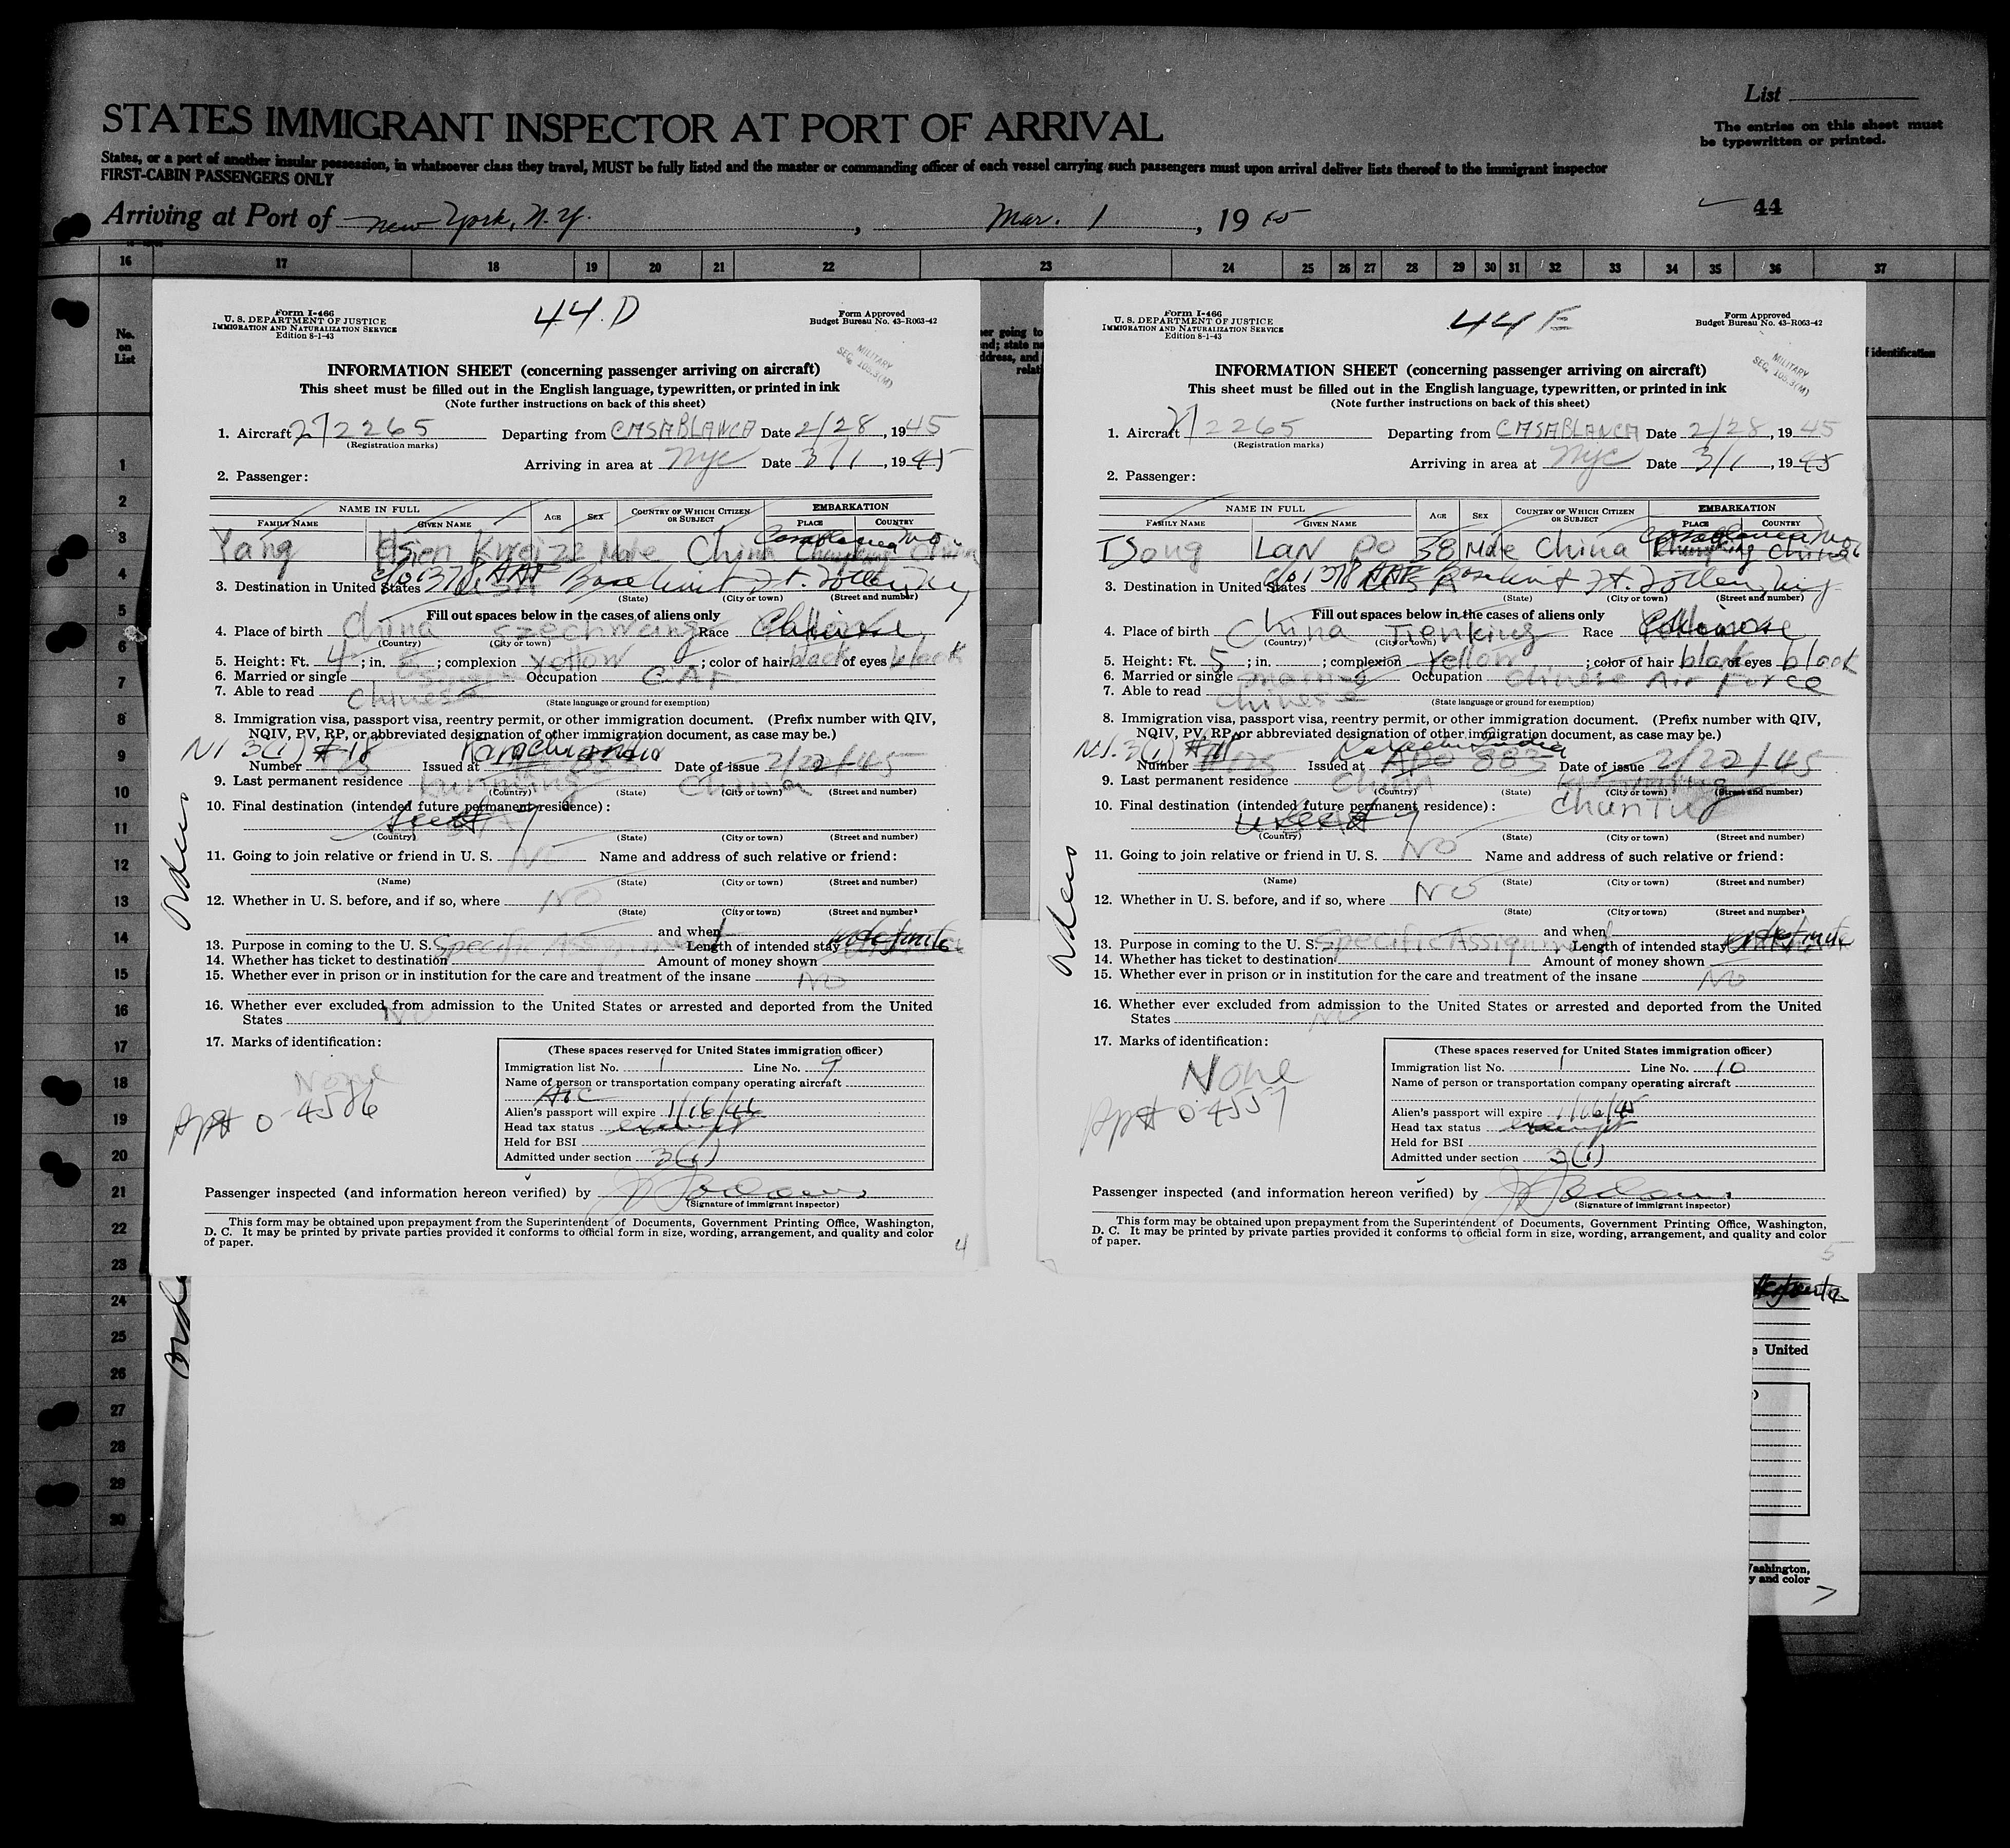 List
STATES IMMIGRANT INSPECTOR AT PORT OF ARRIVAL
The entries on this sheet must
be typewritten or printed.
States, or a port of another insular possession, in whatsoever class they travel, MUST be fully listed and the master or commanding officer of each vessel carrying such passengers must upon arrival deliver lists thereof to the immigrant inspector
FIRST-CABIN PASSENGERS ONLY
Arriving at Port of New York, N.Y. , Mar. 1 , 19 45
44
16 17 18 19 20 21 22 23 24 25 26 27 28 29 30 31 32 33 34 35 36 37
No.
on
List
1
2
3
4
5
6
7
8
9
10
11
12
13
14
15
16
17
18
19
20
21
22
23
24
25
26
27
28
29
30
Form I-466
U. S. DEPARTMENT OF JUSTICE
IMMIGRATION AND NATURALIZATION SERVICE
Edition 8-1-43
44 D
Form Approved
Budget Bureau No. 43-R063-42
MILITARY
SEC. 105.3(M)
INFORMATION SHEET (concerning passenger arriving on aircraft)
This sheet must be filled out in the English language, typewritten, or printed in ink
(Note further instructions on back of this sheet)
1. Aircraft 272265 Departing from CASABLANCA Date 2/28, 1945
(Registration marks)
Arriving in area at NYC Date 3/1, 1945
2. Passenger:
NAME IN FULL AGE SEX COUNTRY OF WHICH CITIZEN OR SUBJECT EMBARKATION
FAMILY NAME GIVEN NAME PLACE COUNTRY
Yang Hsien Kwei Male China Casablanca Mo.
3. Destination in United States c/o 1378 AAF Base Unit Ft. Totten, NY
(State) (City or town) (Street and number)
Fill out spaces below in the cases of aliens only
4. Place of birth China Szechwang Race Chinese
(Country) (City or town)
5. Height: Ft. 4; in. ; complexion Yellow; color of hair black of eyes black
6. Married or single Single Occupation CAF
7. Able to read Chinese
(State language or ground for exemption)
8. Immigration visa, passport visa, reentry permit, or other immigration document. (Prefix number with QIV,
NQIV, PV, RP, or abbreviated designation of other immigration document, as case may be.)
N1 3(1) #18 Karachi India
Number Issued at Date of issue 2/22/45
9. Last permanent residence Kunming China
(Country) (State) (City or town) (Street and number)
10. Final destination (intended future permanent residence):
(Country) (State) (City or town) (Street and number)
11. Going to join relative or friend in U. S. NO Name and address of such relative or friend:
(Name) (State) (City or town) (Street and number)
12. Whether in U. S. before, and if so, where NO
(State) (City or town) (Street and number)
and when
13. Purpose in coming to the U. S. Specific Assignment Length of intended stay indefinite
14. Whether has ticket to destination Amount of money shown
15. Whether ever in prison or in institution for the care and treatment of the insane NO
16. Whether ever excluded from admission to the United States or arrested and deported from the United
States NO
17. Marks of identification:
None
Pp# 0-4586
(These spaces reserved for United States immigration officer)
Immigration list No. 1 Line No. 9
Name of person or transportation company operating aircraft
ATC
Alien's passport will expire 1/16/46
Head tax status exempt
Held for BSI
Admitted under section 3(1)
Passenger inspected (and information hereon verified) by
(Signature of immigrant inspector)
This form may be obtained upon prepayment from the Superintendent of Documents, Government Printing Office, Washington,
D. C. It may be printed by private parties provided it conforms to official form in size, wording, arrangement, and quality and color
of paper.
4
Orders
Form I-466
U. S. DEPARTMENT OF JUSTICE
IMMIGRATION AND NATURALIZATION SERVICE
Edition 8-1-43
44 E
Form Approved
Budget Bureau No. 43-R063-42
MILITARY
SEC. 105.3(M)
INFORMATION SHEET (concerning passenger arriving on aircraft)
This sheet must be filled out in the English language, typewritten, or printed in ink
(Note further instructions on back of this sheet)
1. Aircraft 272265 Departing from CASABLANCA Date 2/28, 1945
(Registration marks)
Arriving in area at NYC Date 3/1, 1945
2. Passenger:
NAME IN FULL AGE SEX COUNTRY OF WHICH CITIZEN OR SUBJECT EMBARKATION
FAMILY NAME GIVEN NAME PLACE COUNTRY
TSong LAN PO 38 Male China Casablanca Mo.
3. Destination in United States c/o 1378 AAF Base Unit Ft. Totten, NY
(State) (City or town) (Street and number)
Fill out spaces below in the cases of aliens only
4. Place of birth China Tienking Race Chinese
(Country) (City or town)
5. Height: Ft. 5; in. ; complexion Yellow; color of hair black of eyes black
6. Married or single Occupation Chinese Air Force
7. Able to read Chinese
(State language or ground for exemption)
8. Immigration visa, passport visa, reentry permit, or other immigration document. (Prefix number with QIV,
NQIV, PV, RP, or abbreviated designation of other immigration document, as case may be.)
N1. 3(1) Karachi India
Number Issued at APO 883 Date of issue 2/22/45
9. Last permanent residence China
(Country) (State) (City or town) (Street and number)
10. Final destination (intended future permanent residence):
(Country) (State) (City or town) (Street and number)
11. Going to join relative or friend in U. S. NO Name and address of such relative or friend:
(Name) (State) (City or town) (Street and number)
12. Whether in U. S. before, and if so, where NO
(State) (City or town) (Street and number)
and when
13. Purpose in coming to the U. S. Specific Assignment Length of intended stay indefinite
14. Whether has ticket to destination Amount of money shown
15. Whether ever in prison or in institution for the care and treatment of the insane NO
16. Whether ever excluded from admission to the United States or arrested and deported from the United
States NO
17. Marks of identification:
None
Pp# 0-4557
(These spaces reserved for United States immigration officer)
Immigration list No. 1 Line No. 10
Name of person or transportation company operating aircraft
Alien's passport will expire 1/16/45
Head tax status exempt
Held for BSI
Admitted under section 3(1)
Passenger inspected (and information hereon verified) by
(Signature of immigrant inspector)
This form may be obtained upon prepayment from the Superintendent of Documents, Government Printing Office, Washington,
D. C. It may be printed by private parties provided it conforms to official form in size, wording, arrangement, and quality and color
of paper.
5
Orders
United
Washington,
y and color
7